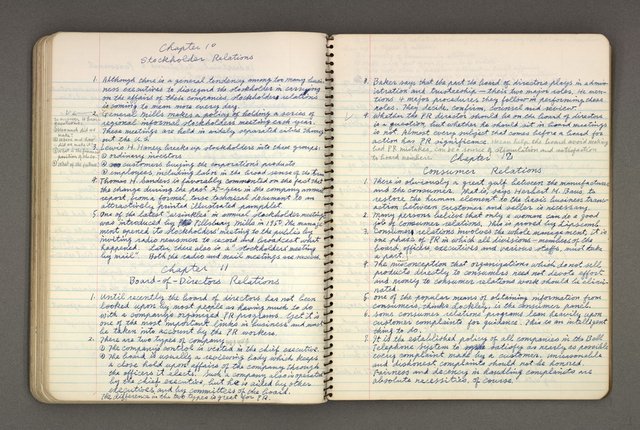 Chapter 10
Stockholder Relations
1. Although there is a general tendency among too many business
ness executives to disregard the stockholder in carrying
on the affairs of their companies stockholder relations
is coming to mean more every day.
2. General Mills makes a policy of holding a series of
regional informal stockholder meetings each year.
These meetings are held in widely separated cities through
out the U.S.
3. Lewis H. Haney breaks up stockholders into three groups:
① ordinary investors
② customers buying the corporation's products
③ employees, including labor in the broad sense of the term
4. Thomas H. Sanders is favorably commented on the fact that
the change during the past 25-years in the company annual
report from a formal terse technical document to an
attractively printed illustrated pamphlet.
5. One of the latest "wrinkles" in annual stockholder meetings
was introduced by Pillsbury Mills in 1950. The manage-
ment opened its stockholders meeting to the public by
inviting radio newsmen to record and broadcast what
happened. Later, there also is a "stockholders meeting
by mail". Both the radio and mail meetings are
Chapter 11
Board-of-Directors Relations
1. Until recently the board of directors has not been
looked upon by most people as having much to do
with a companys organized PR programs. Yet it is
one of the most important links in business and must
be taken into account by the PR workers.
2. There are two types of company
① The company control is created in the chief executive.
② The board is usually a reviewing body which keeps
a close hold upon affairs of the company through
the officers it elects. Such a company also is operated
by the chief executive, but he is aided by other
executives and by committees of the board.
The difference in the two types is great for P.R.
3. Baker says that the part the board of directors plays in admin-
istration and trusteeship - their two major roles. He men-
tions 4 major procedures they follow in performing these
roles. They decide, confirm, counsel and review.
4. Whether the PR director should be on the board of directors
is a question, but whether he should sit in board meetings
is not. Almost every subject that comes before a board for
action has PR significance. He can help the board avoid making
bad PR mistakes, can be a source of stimulation and satisfaction
to board members.
Chapter 12
Consumer Relations
1. There is obviously a great gulf between the manufacturer
and the consumer. That is, says Herbert M. Baus, to
restore the human element to the basic business trans-
action between customer and seller is necessary.
2. Many persons believe that only a woman can do a good
job of consumer relations. This is proved by Lipscomb.
3. Consumer relations involves the whole management, it is
one phase of PR in which all divisions - members of the
board, officers, executives and various staffs, must take
a part.
4. The misconception that organizations which do not sell
products directly to consumers need not devote effort
and money to consumer relations work should be elimi-
nated.
5. One of the popular means of obtaining information from
consumers, thinks Lockley, is the consumer panel.
6. Some consumer relations programs lean heavily upon
customer complaints for guidance. This is an intelligent
thing to do.
7. It is the established policy of all companies in the Bell
Telephone System to satisfy as nearly as possible
every complaint made by a customer. Unreasonable
and dishonest complaints should not be honored.
Fairness and decency in handling complaints are
absolute necessities, of course.